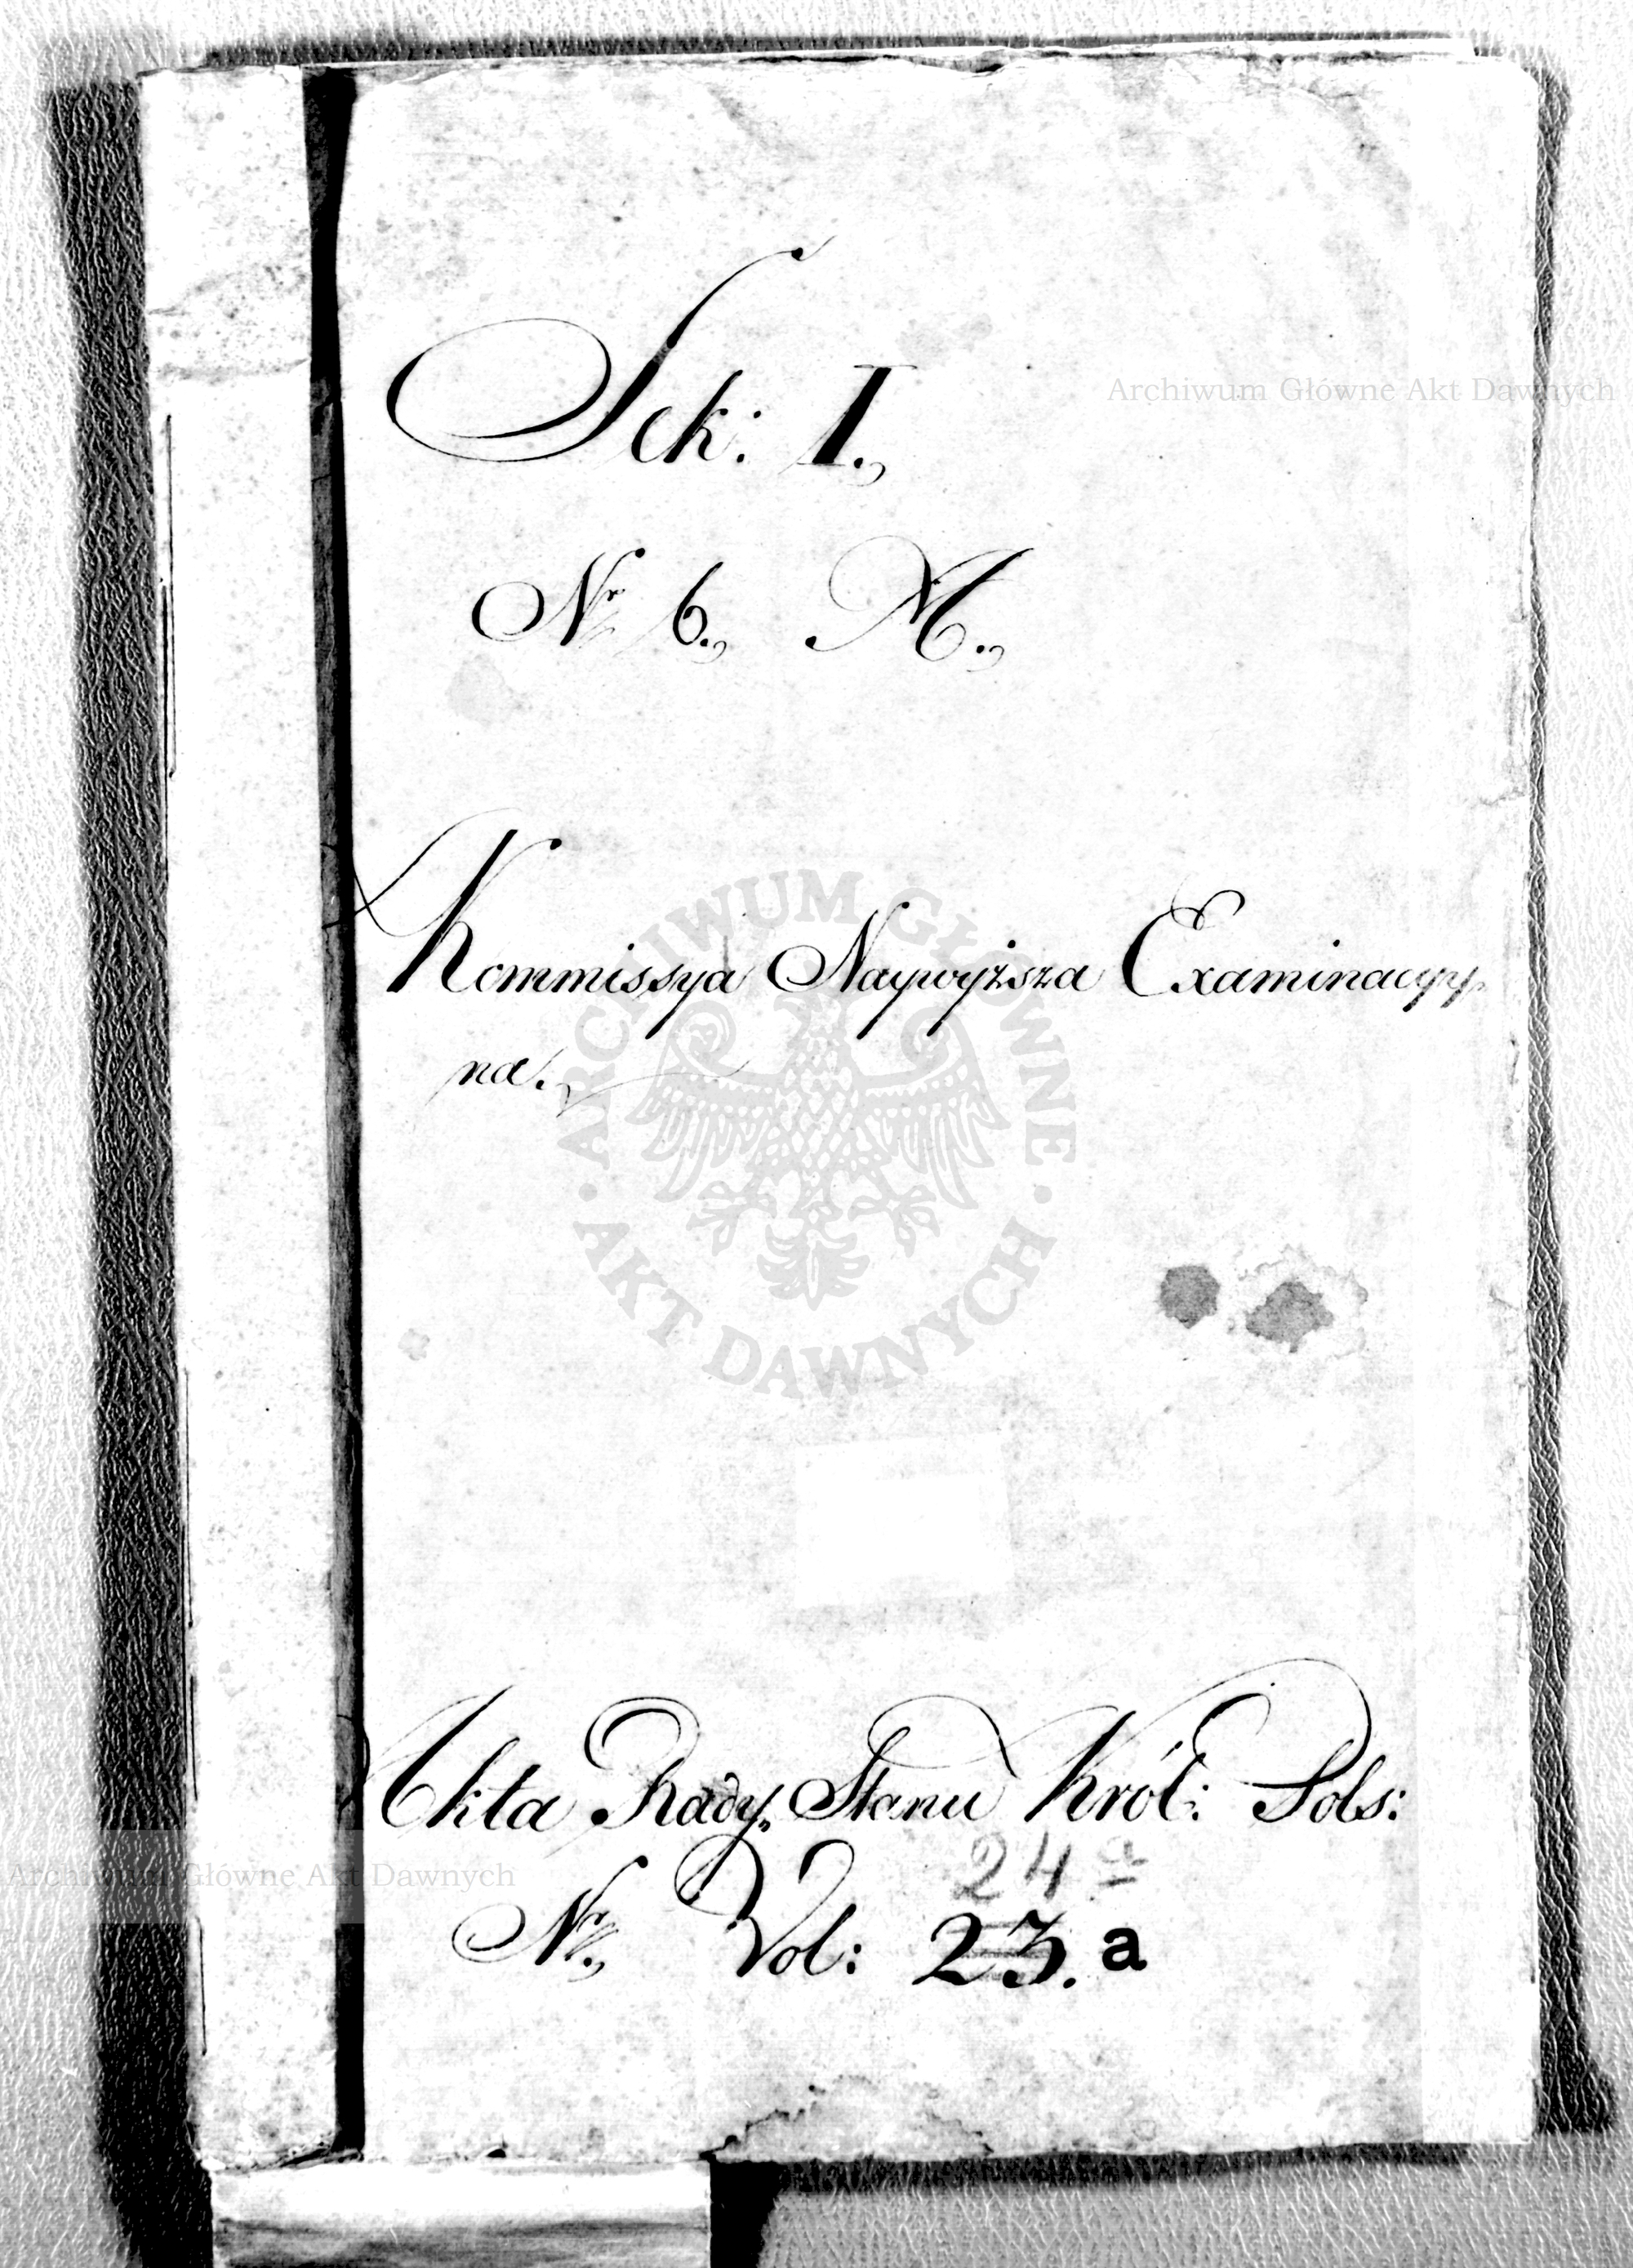 Sek: I.,
Archiwum Główne Akt Dawnych
Nr 6., A.,
Kommissya Naywyższa Examinacyy
na.
ARCHIWUM GŁÓWNE AKT DAWNYCH
Akta Rady Stanu Król: Pols:
24 a
Archiwum Główne Akt Dawnych
Nr., Vol: 23. a